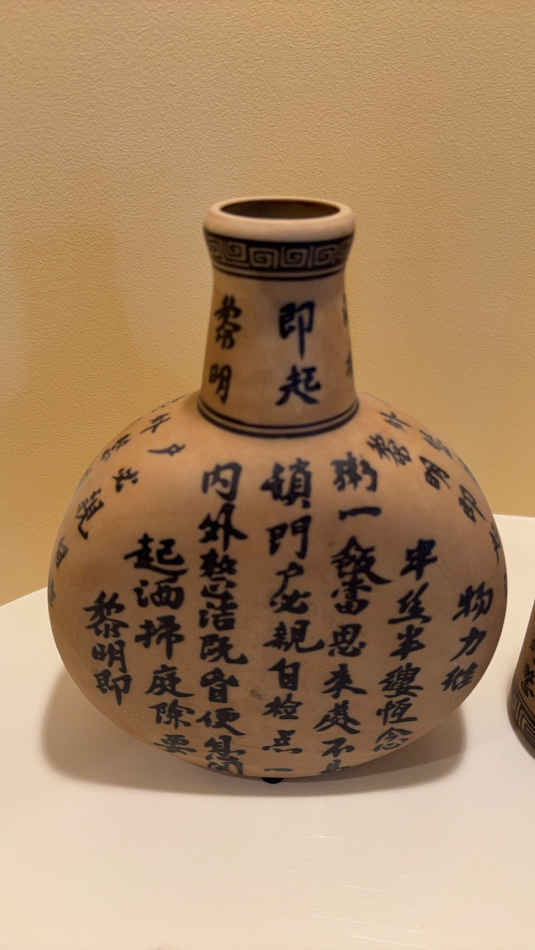 黎明
即起
黎明即
起洒掃庭除要
内外整洁既昏便息
鎖門户必親自檢点一
粥一飯當思来處不易
半丝半縷恆念
物力維
黎明即